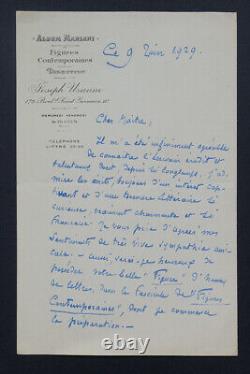 ALBUM MARIANI
Figures
Contemporaines
DIRECTEUR
Joseph Uzanne
172, Boul.d Saint Germain, VI
MERCREDI VENDREDI
TÉLÉPHONE
Ce 9 Juin 1929.
Cher Maître,
Il m'a été infiniment agréable
de connaître l'écrivain érudit et
talentueux dont, depuis si longtemps, j'ad-
mire les écrits, toujours d'un intérêt cap-
tivant et d'une tenue littéraire si
curieuse, vraiment charmante et si
Française. Je vous prie d'agréer mes
sentiments de très vive sympathie ami-
cale. Aussi, serais-je heureux de
posséder votre belle "Figure" d'homme
de lettres, dans le fascicule de "Figures
Contemporaines", dont je commence
la préparation.
© tamyna.com